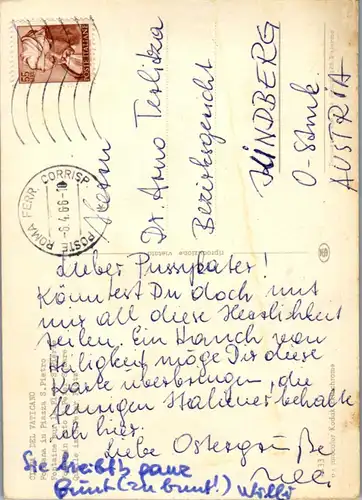 POSTE ITALIANE
55
ROMA FERR. CORRISP.
-6.4.66-10
POSTE
Herrn
Dr Arno Terlitza
Bezirksgericht
KINDBERG
O-Stmk
AUSTRIA
Lieber Pussykater!
Könntest Du doch mit
mir all diese Herrlichkeit
teilen. Ein Hauch von
Heiligkeit möge Dir diese
Karte überbringen, die
feurigen Italiener behalte
ich hier.
Liebe Ostergrüße
Sie treibt's ganz
bunt (zu bunt!) Willi
CITTÀ DEL VATICANO
Fontana in Piazza S. Pietro
riproduzione vietata